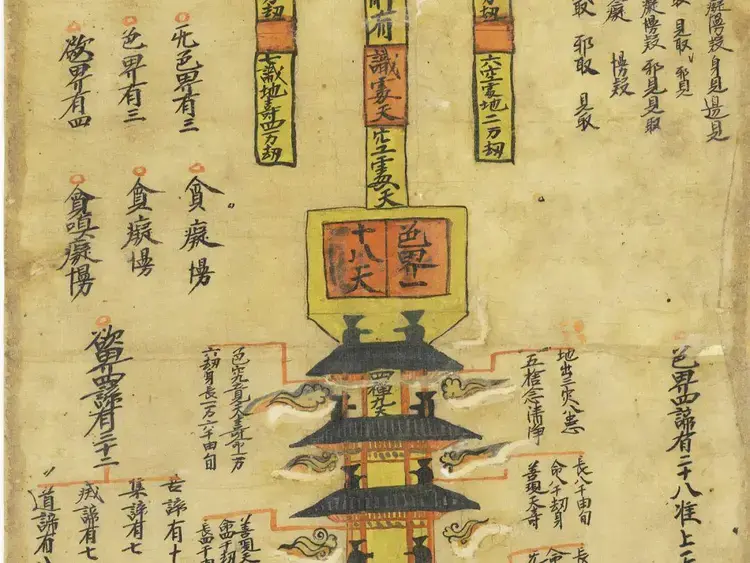 癡慢疑身見邊見
見取 邪見
癡慢疑 邪見見取
癡 慢疑
取 邪取 見取
万劫
六空處地二万劫
有
識處天
空處天
劫
七識地壽四万劫
无色界有三
色界有三
欲界有四
貪癡慢
貪癡慢
貪嗔癡慢
色界一
十八天
四禪九天
色界四諦有二十八准上
地出三灾八患
五捨念清淨
長八千由旬
命八千劫身
善現天壽
長
命
色究竟天壽命一万
六劫身長一万六千由旬
善現天
命四千劫
長四千由
欲界四諦有三十二
苦諦有十
集諦有七
滅諦有七
道諦有八